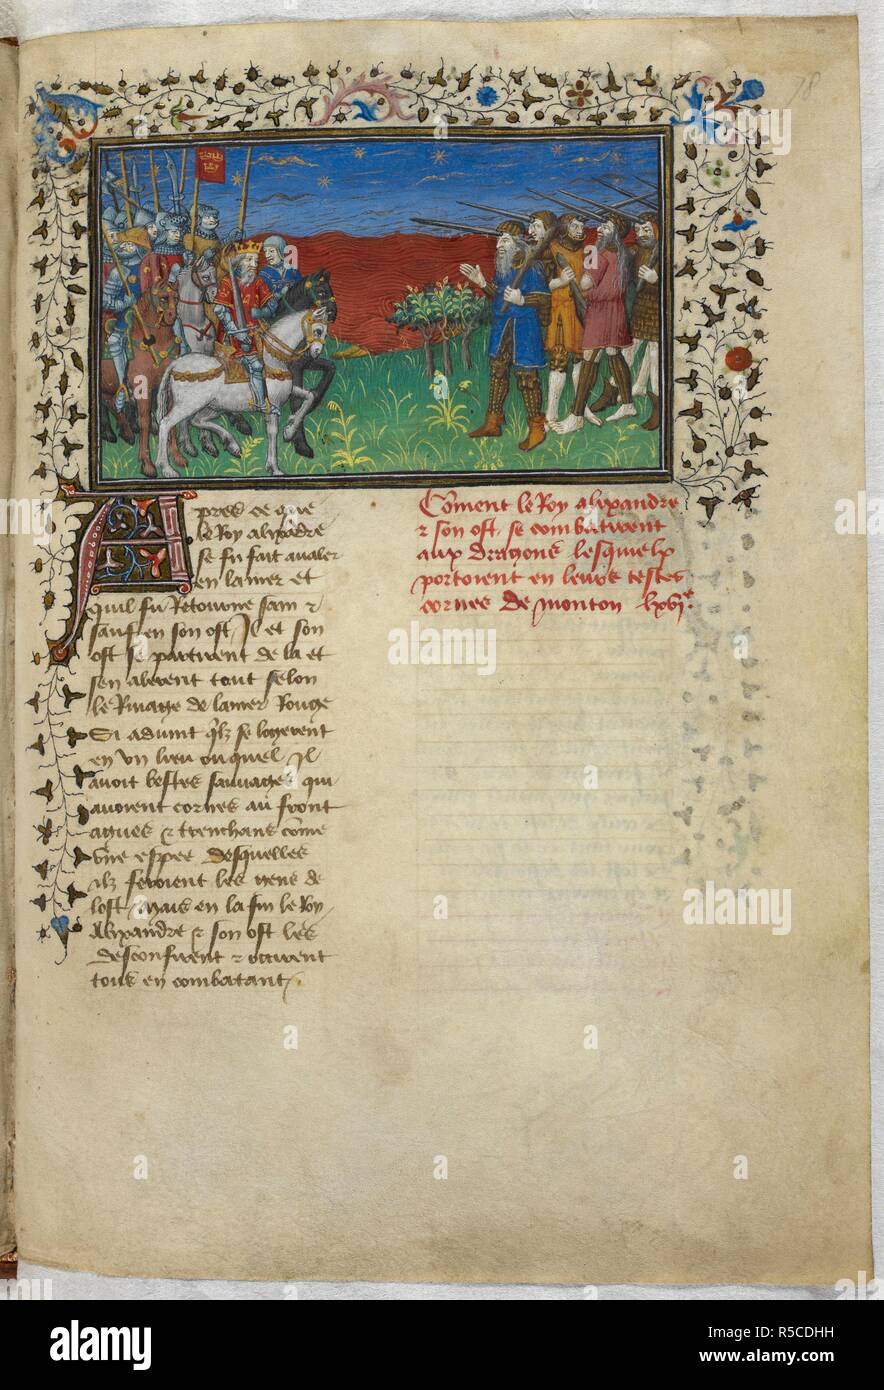 78
Apres ce que
le Roy alixandre
se fu fait avaler
en la mer et
quil fu Retourne sain &
sauf en son ost / Il et son
ost se partirent de la et
sen alerent tout selon
le Rivage de la mer Rouge
Si advint qlz se logerent
en vn lieu ouquel Il
avoit bestes sauvages qui
avoient cornes au front
agues & trenchans come
vne espee desquelles
Ilz feroient les gens de
lost / mais en la fin le Roy
Alixandre & son ost les
desconfirent & occirent
tous en combatant /.
Coment le Roy alixandre
& son ost se combatirent
aux dragons lesquelx
portoient en leurs testes
cornes de mouton lxvje.
alamy
Image ID: R5CDHH
www.alamy.com